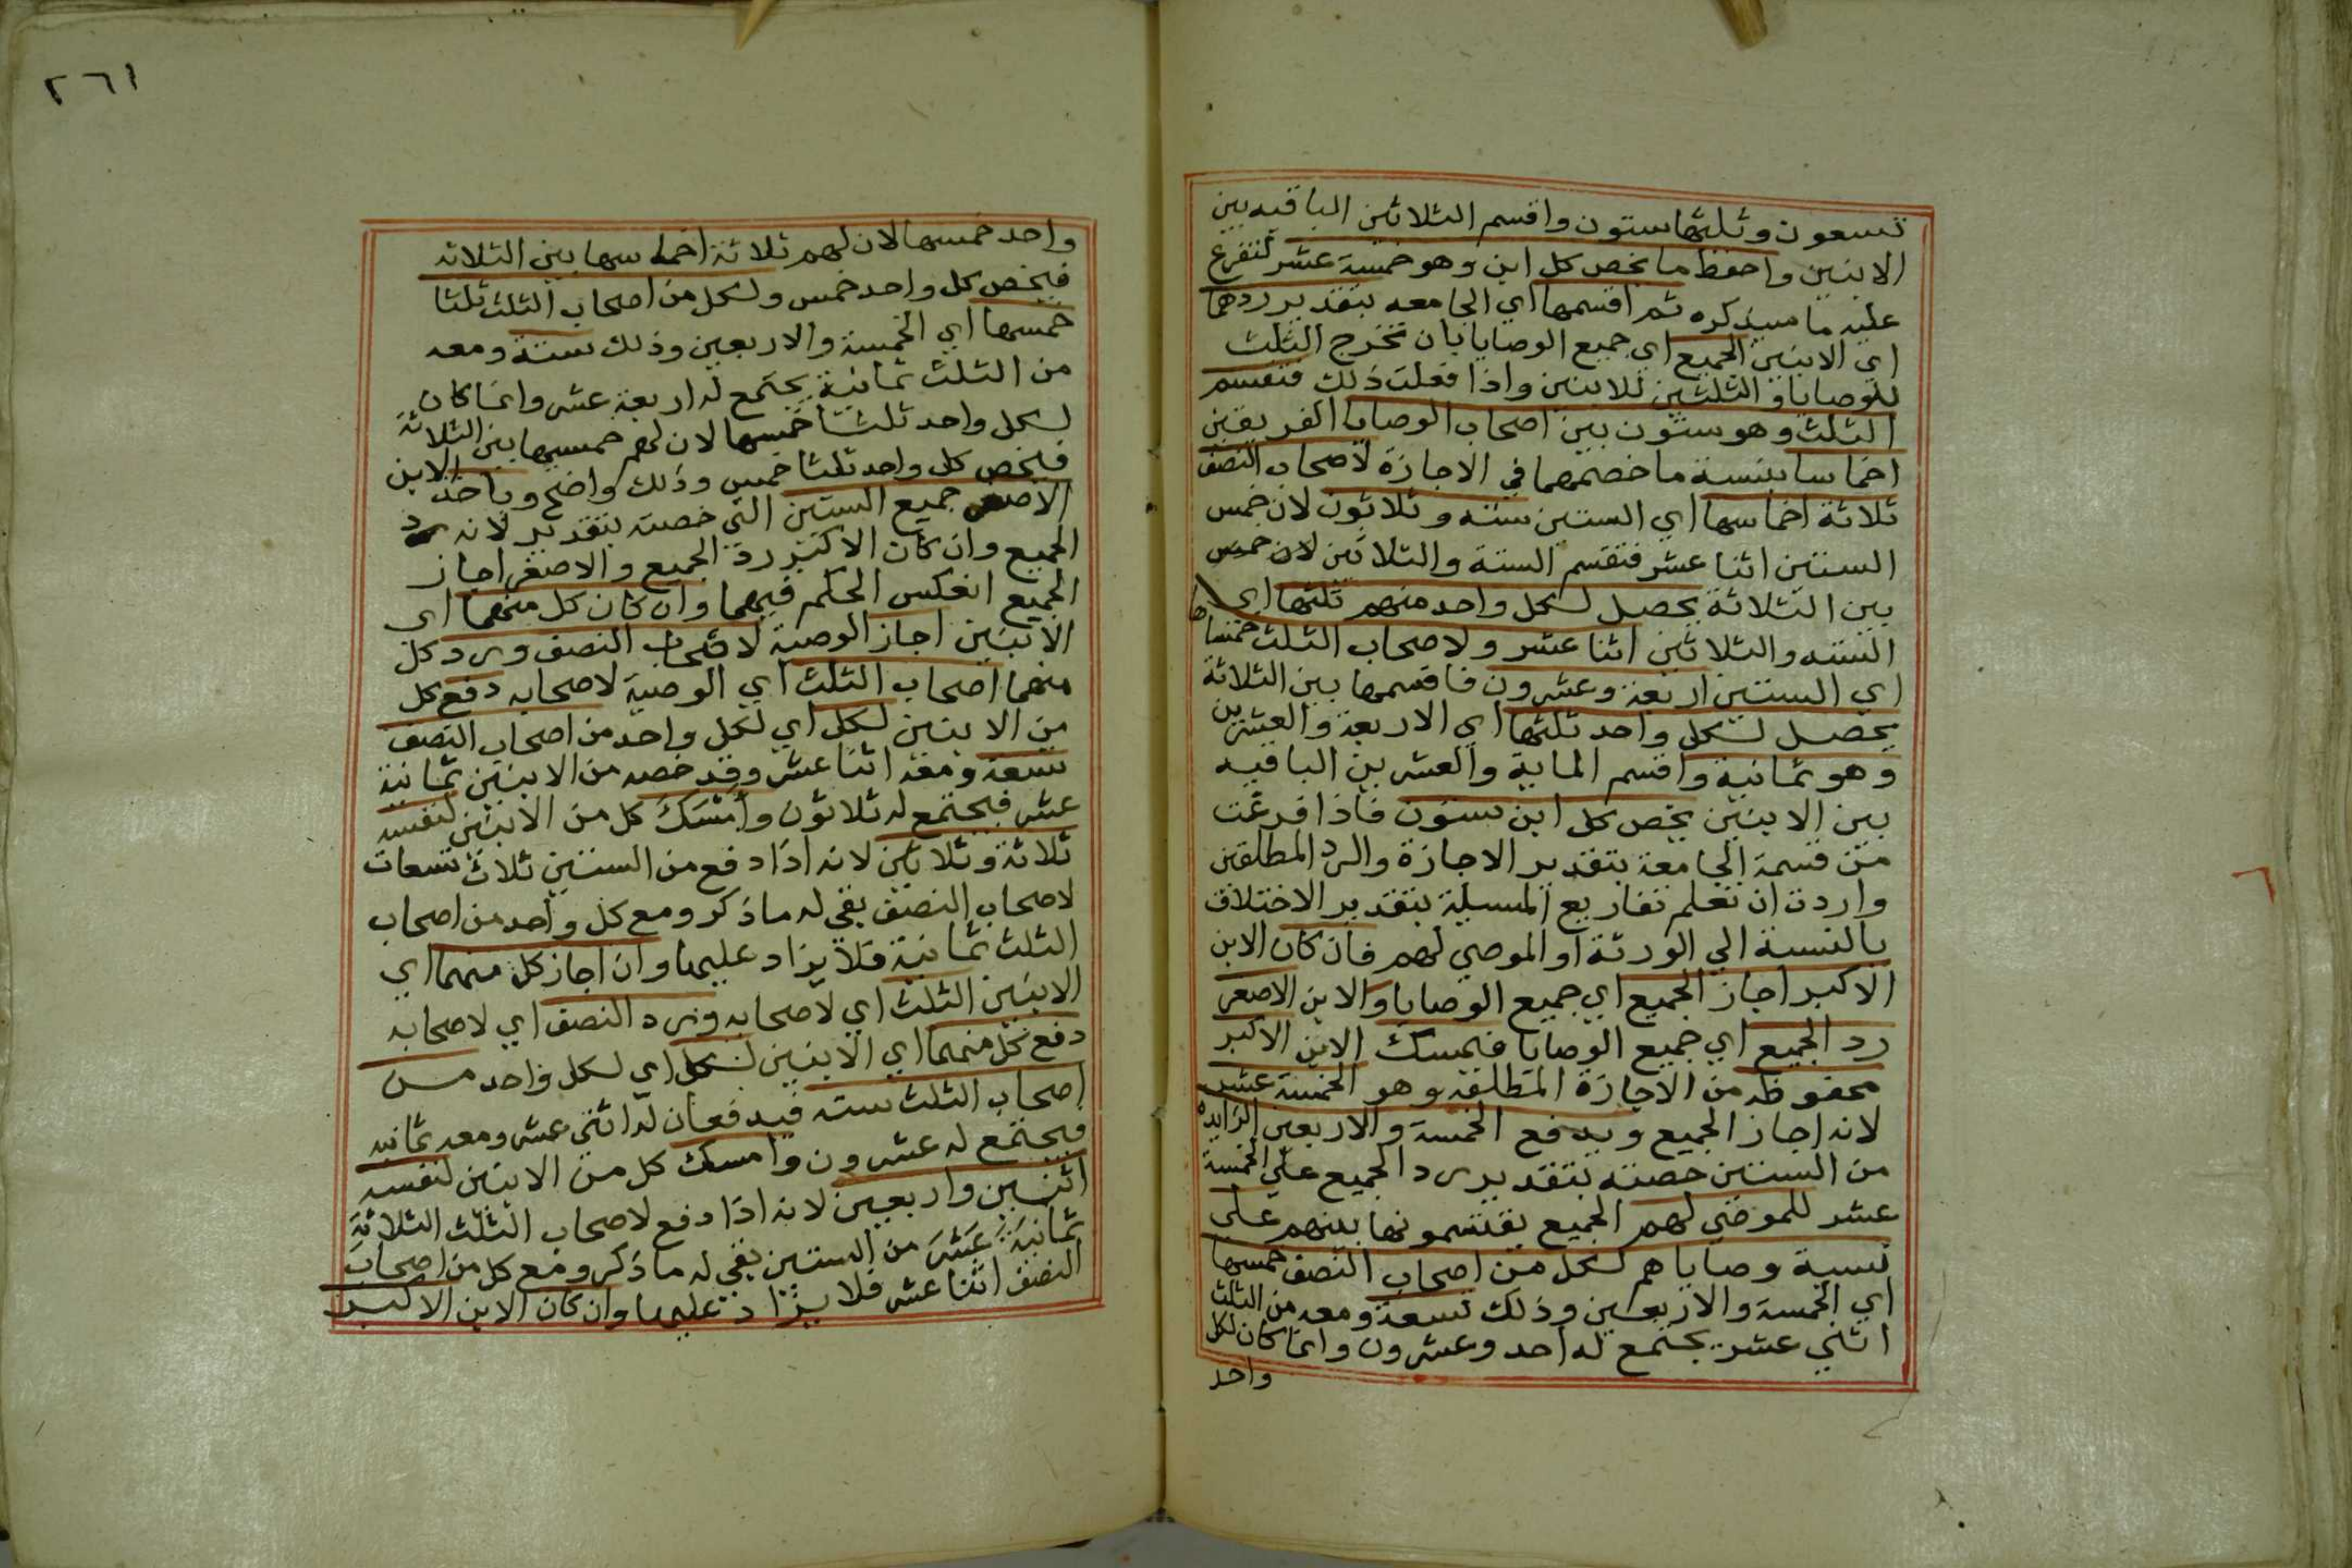 تسعون وثلثها ستون واقسم الثلاثين الباقيه بين
الابنين واحفظ ما يخص كل ابن وهو خمسة عشر لتفرع
عليه ما سيذكره ثم اقسمها اي الجامعه بتقدير ردهما
اي الابنين الجميع اي جميع الوصايا بان تخرج الثلث
للوصايا والثلثين للابنين واذا فعلت ذلك فتقسم
الثلث وهو ستون بين اصحاب الوصايا الفريقين
اخماسا بنسبة ما خصهما في الاجازة لاصحاب النصف
ثلاثة اخماسها اي الستين ستة وثلاثون لان خمس
الستين اثنا عشر فتقسم الستة والثلاثين لان خمس
بين الثلاثة يحصل لكل واحد منهم ثلثها اي
الستة والثلاثين اثنا عشر ولاصحاب الثلث خمساها
اي الستين اربعة وعشرون فاقسمها بين الثلاثة
يحصل لكل واحد ثلثها اي الاربعة والعشرين
وهو ثمانية واقسم الماية والعشرين الباقيه
بين الابنين يخص كل ابن ستون فاذا فرغت
من قسمة الجامعة بتقدير الاجازة والرد المطلقين
واردت ان تعلم تفاريع المسيلة بتقدير الاختلاف
بالنسبة الي الورثة او الموصي لهم فان كان الابن
الاكبر اجاز الجميع اي جميع الوصايا والابن الاصغر
رد الجميع اي جميع الوصايا فيمسك الابن الاكبر
محفوظه من الاجازة المطلقه وهو الخمسة عشر
لانه اجاز الجميع ويدفع الخمسة والاربعين الزايده
من الستين حصته بتقدير رد الجميع علي الخمسة
عشر للموصي لهم الجميع يقتسمونها بينهم علي
نسبة وصاياهم لكل من اصحاب النصف خمسها
اي الخمسة والاربعين وذلك تسعة ومعه من الثلث
اثني عشر يجتمع له احد وعشرون وانما كان لكل
واحد
٢٦١
واحد خمسها لان لهم ثلاثة اخماسها بين الثلاثه
فيخص كل واحد خمس ولكل من اصحاب الثلث ثلثا
خمسها اي الخمسة والاربعين وذلك ستة ومعه
من الثلث ثمانية يجتمع له اربعة عشر وانما كان
لكل واحد ثلثا خمسها لان لهم خمسيها بين الثلاثة
فيخص كل واحد ثلثا خمس وذلك واضح وياخذ الابن
الاصغر جميع الستين التي خصته بتقدير لانه رد
الجميع وان كان الاكبر رد الجميع والاصغر اجاز
الجميع انعكس الحكم فيهما وان كان كل منهما اي
الابنين اجاز الوصية لاصحاب النصف ورد كل
منهما اصحاب الثلث اي الوصية لاصحابه دفع كل
من الابنين لكل اي لكل واحد من اصحاب النصف
تسعة ومعه اثنا عشر وقد خصه من الابنين ثمانية
عشر فيجتمع له ثلاثون وامسك كل من الابنين لنفسه
ثلاثة وثلاثين لانه اذا دفع من الستين ثلاث تسعات
لاصحاب النصف بقي له ما ذكر ومع كل واحد من اصحاب
الثلث ثمانية فلا يزاد عليها وان اجاز كل منهما اي
الابنين الثلث اي لاصحابه ورد النصف اي لاصحابه
دفع كل منهما اي الابنين لكل اي لكل واحد من
اصحاب الثلث سته فيدفعان له اثني عشر ومعه ثمانيه
فيجتمع له عشرون وامسك كل من الابنين لنفسه
اثنين واربعين لانه اذا دفع لاصحاب الثلث الثلاثة
ثمانية عشر من الستين بقي له ما ذكر ومع كل من اصحاب
النصف اثنا عشر فلا يزاد عليها وان كان الابن الاكبر